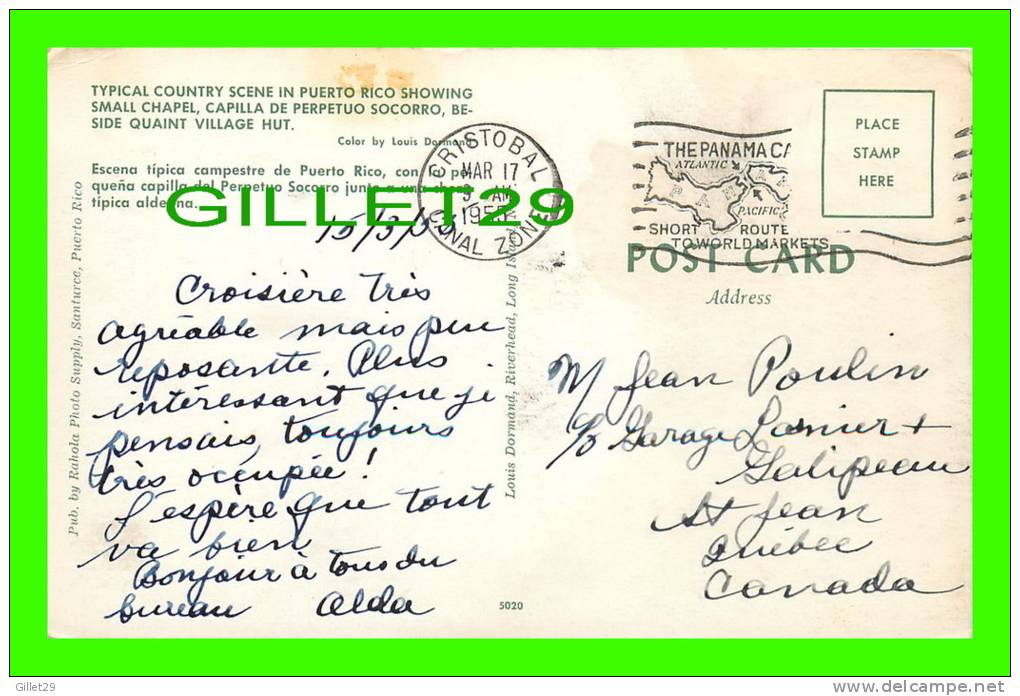 TYPICAL COUNTRY SCENE IN PUERTO RICO SHOWING
SMALL CHAPEL, CAPILLA DE PERPETUO SOCORRO, BE-
SIDE QUAINT VILLAGE HUT.
Color by Louis Dormand
Escena típica campestre de Puerto Rico, con
queña capilla del Perpetuo Socorro junto a una
típica
GILLET29
CRISTOBAL
MAR 17
AM
CANAL ZONE
THE PANAMA CA
ATLANTIC
PACIFIC
SHORT ROUTE
TO WORLD MARKETS
PLACE
STAMP
HERE
POST CARD
Address
15/3/55
Croisière très
agréable mais peu
reposante. Plus
intéressant que je
pensais, toujours
très occupée!
J'espère que tout
va bien
Bonjour à tous du
bureau Alda
M Jean Poulin
c/o Garage Lanier +
Galipeau
St Jean
Québec
Canada
Pub. by Rahola Photo Supply, Santurce, Puerto Rico
Louis Dormand, Riverhead, Long Island
5020
Gillet29
www.delcampe.net